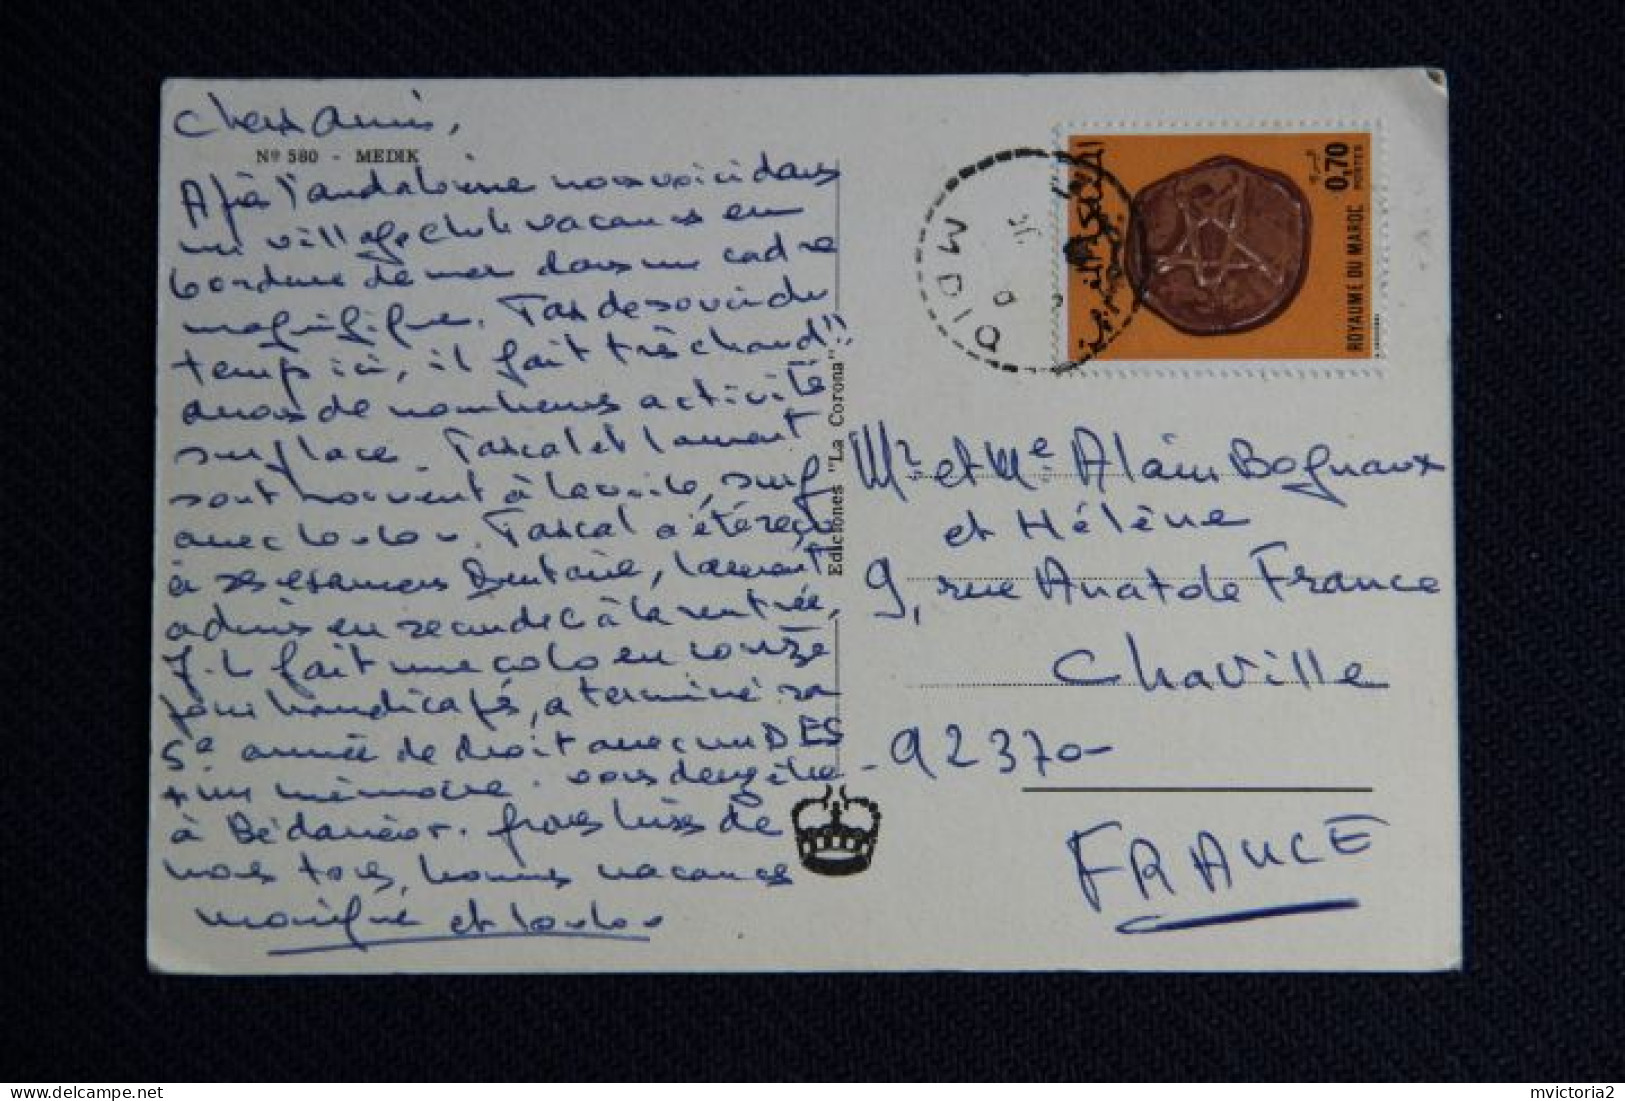 Chers Amis,
Nº 580 - MEDIK
Après l'andalousie nous voici dans
un village club vacances en
bordure de mer dans un cadre
magnifique. Pas de souci du
temps ici, il fait très chaud!!
avons de nombreuses activités
sur place. Pascal et Laurent
sont souvent à la voile, surf
avec Loulou. Pascal a été reçu
à ses examens Dentaire, Laurent
admis en seconde C à la rentrée,
J.L fait une colo en Corrèze
pour handicapés, a terminé sa
5e année de droit avec un DES
+ un mémoire. vous devez être
à Bédarieux. grosses bises de
nous tous, bonnes vacances
Monique et Loulou
Ediciones "La Corona"
MDIQ
0,70
POSTES
ROYAUME DU MAROC
Mr et Me Alain Bognaux
et Hélène
9, rue Anat de France
Chaville
- 92370 -
FRANCE
mvictoria2